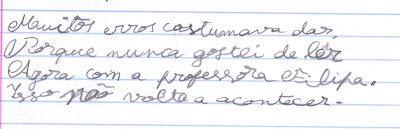 Muitos erros costumava dar,
Porque nunca gostei de lêr
Agora com a professora Filipa.
Isso não volta a acontecer.